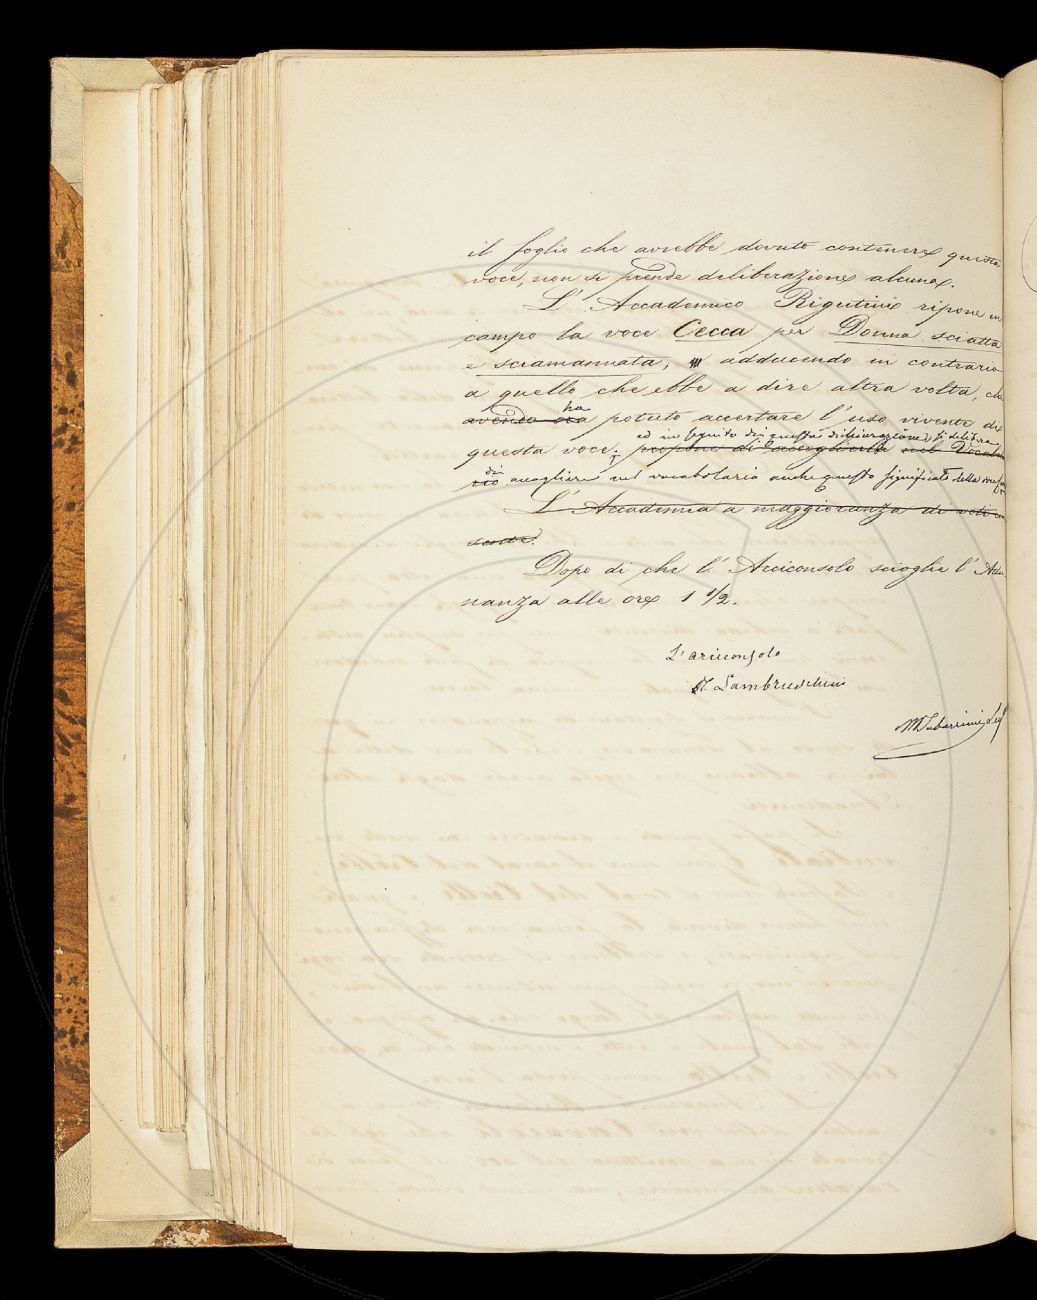 il foglio che avrebbe dovuto contenere questa
voce, non si prende deliberazione alcuna.
L'Accademico Rigutini ripone in
campo la voce Cecca per Donna sciatta
e sciamannata, adducendo in contrario
a quello che ebbe a dire altra volta, che
avendo ora ha potuto accertare l'uso vivente di
ed in seguito di questa dichiarazione si delibera
questa voce; propone di accoglierla nel Vocabola
rio di accogliere nel vocabolario anche questo significato della voce
L'Accademia a maggioranza di voti
Dopo di che l'Arciconsolo scioglie l'Adu
nanza alle ore 1 1/2.
L'arciconsolo
R. Lambruschini
M Tabarrini Seg